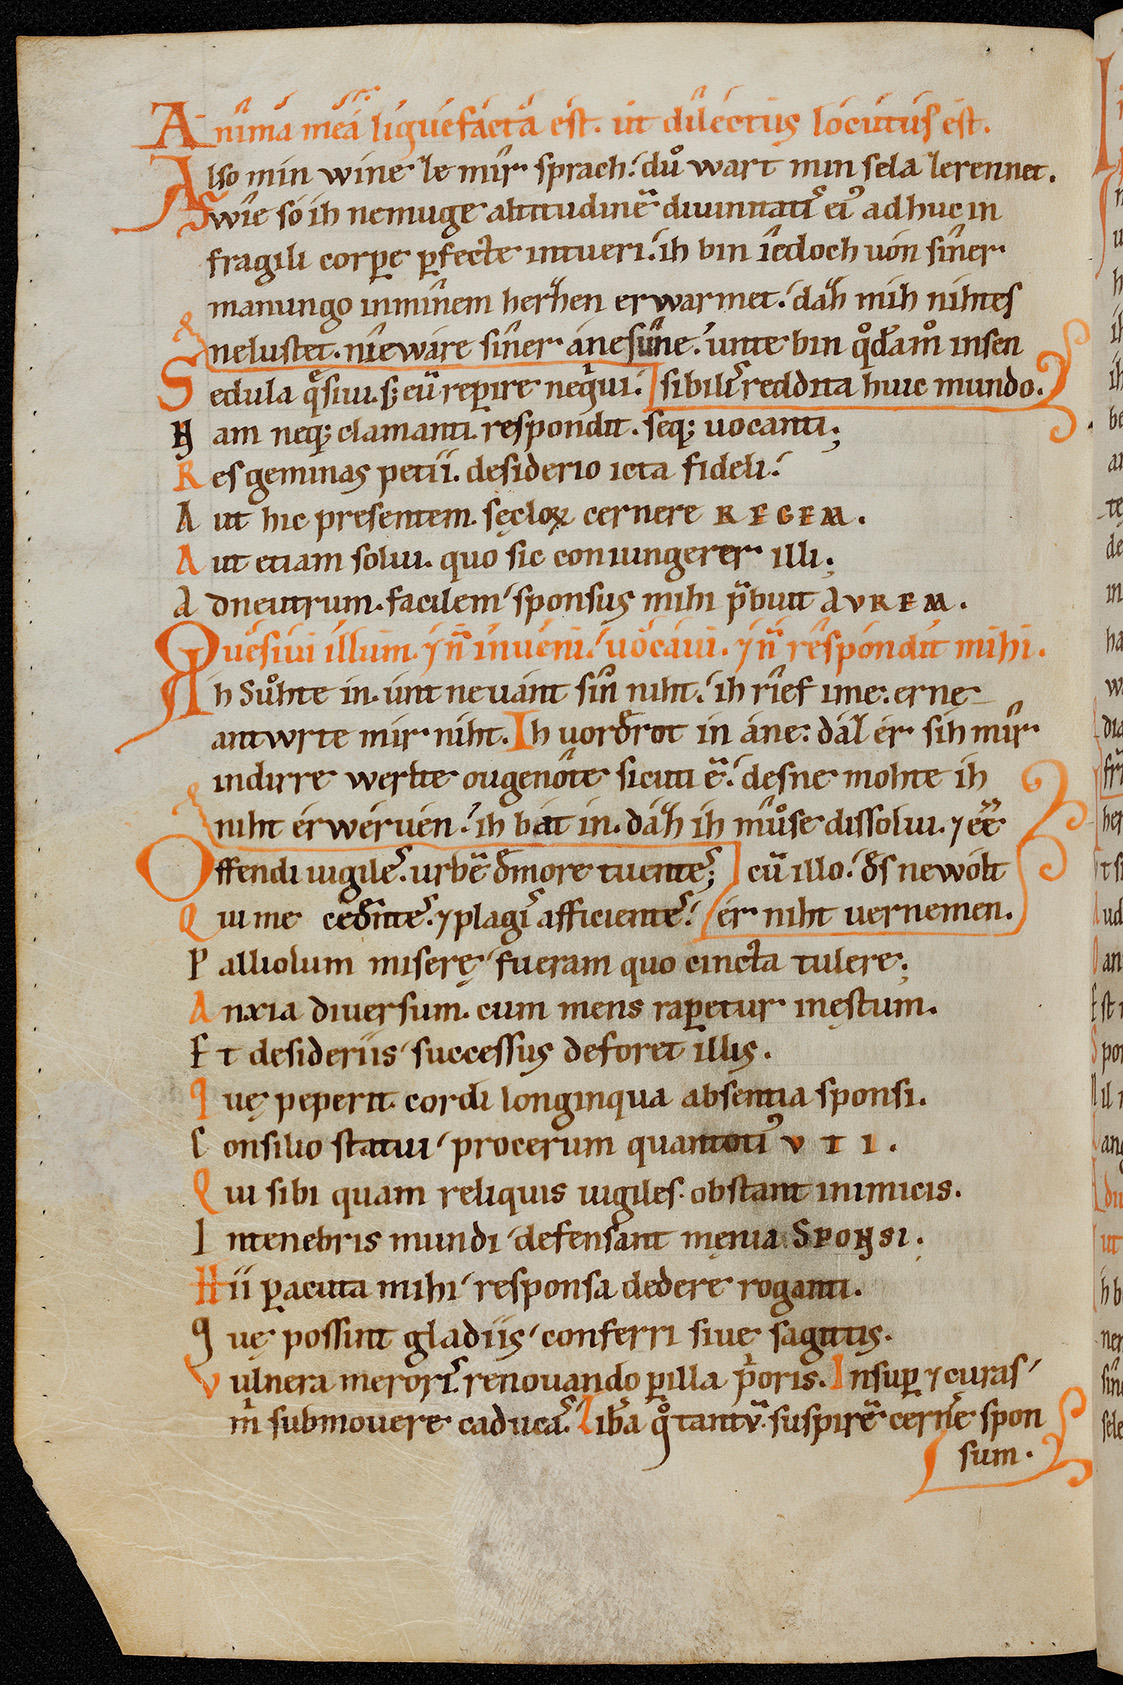 Anima mea liquefacta est. ut dilectus locutus est.
Also min wine ze mir sprach. dů wart min sela zerennet.
Swîe so ih nemuge altitudinē diuinitatis ei᷒ adhuc in
fragili corpe pfecte intueri. ih bin îedoch uon sîner
manungo inmînem herzen erwarmet. daz mih nihtes
nelustet. nîeware sîner anesûne. unte bin qdāmo insen
Sedula quesiui. s; eū repire neqiui. sibilis reddita huic mundo.
Nam neq; clamanti. respondit. seq; uocanti;
Res geminas petii. desiderio icta fideli.
Aut hic presentem. sęcloꝝ cernere REGEM.
Aut etiam solui. quo sic coniungerer illi;
Ad neutrum. facilem sponsus mihi p̄buit AVREM.
Quesiui illum. ⁊ n̄ inueni. uocaui. ⁊ n̄ respondit mihi.
Ih Sůhte in. unt neuant sîn niht. ih rîef ime. erne
antwrte mir niht. Ih uorderot in ane. daz er sih mir
indirre werlte ougenôte sicuti ē. desne mohte ih
niht erweruen. ih bat in. daz ih můse dissolui. ⁊ eē
Offendi uigiles. urbē d̄more tuentes; cū illo. des newolt
Qui me cedentes. ⁊ plagis afficientes. er niht uernemen.
Palliolum miserę fueram quo cincta tulere;
Anxia diuersum. cum mens raperetur inęstum.
Et desideriis successus deforet illis.
Quę peperit. cordi longinqua absentia sponsi.
Consilio statui procerum quantoti᷒ VTI.
Qui sibi quam reliquis uigiles. obstant inimicis.
In tenebris mundi defensant męnia SPONSI.
Hii pacuta mihi responsa dedere roganti.
Quę possint gladiis conferri siue sagittis.
Vulnera meroris. renouando p illa p̄oris. Insup ⁊ curas
m̄ submouere caducas. Libā qo tantū. suspirē cerne͛ spon
sum.